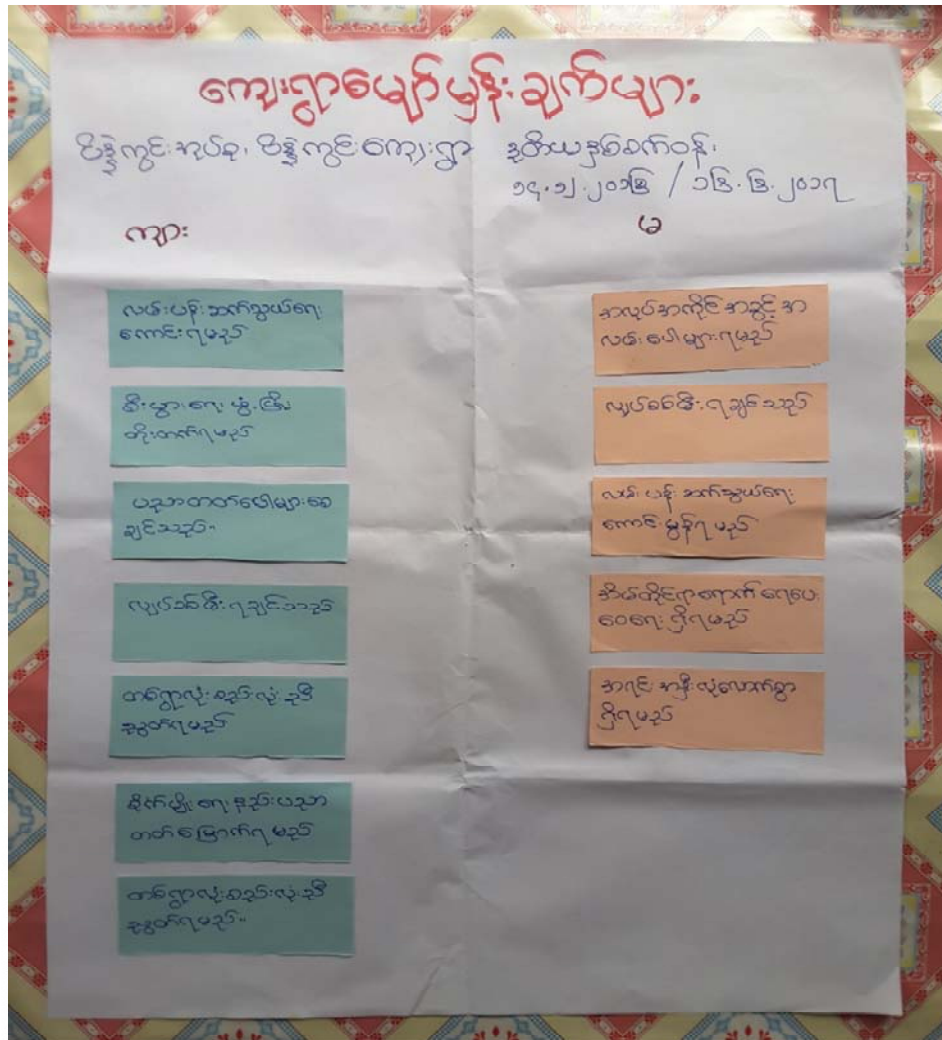 ကျေးရွာမျှော်မှန်းချက်များ
ပိန္နဲကွင်းအုပ်စု၊ ပိန္နဲကွင်းကျေးရွာ ဒုတိယနှစ်ဝက်ဝန်း
၁၄.၁၂.၂၀၁၆ / ၁၆.၆.၂၀၁၇
ကျား
မ
လမ်းပန်းဆက်သွယ်ရေး
ကောင်းရမည်
စီးပွားရေးဖွံ့ဖြိုး
တိုးတက်ရမည်
ပညာတတ်ပေါများစေ
ချင်သည်။
လျှပ်စစ်မီးရချင်သည်
တစ်ရွာလုံးစည်းလုံးညီ
ညွတ်ရမည်
စိုက်ပျိုးရေးနည်းပညာ
တတ်မြောက်ရမည်
တစ်ရွာလုံးစည်းလုံးညီ
ညွတ်ရမည်။
အလုပ်အကိုင်အခွင့်အ
လမ်းပေါများရမည်
လျှပ်စစ်မီးရချင်သည်
လမ်းပန်းဆက်သွယ်ရေး
ကောင်းမွန်ရမည်
အိမ်တိုင်ရာရောက်ရေပေး
ဝေရေးရှိရမည်
အရင်းအနှီးလုံလောက်စွာ
ရှိရမည်